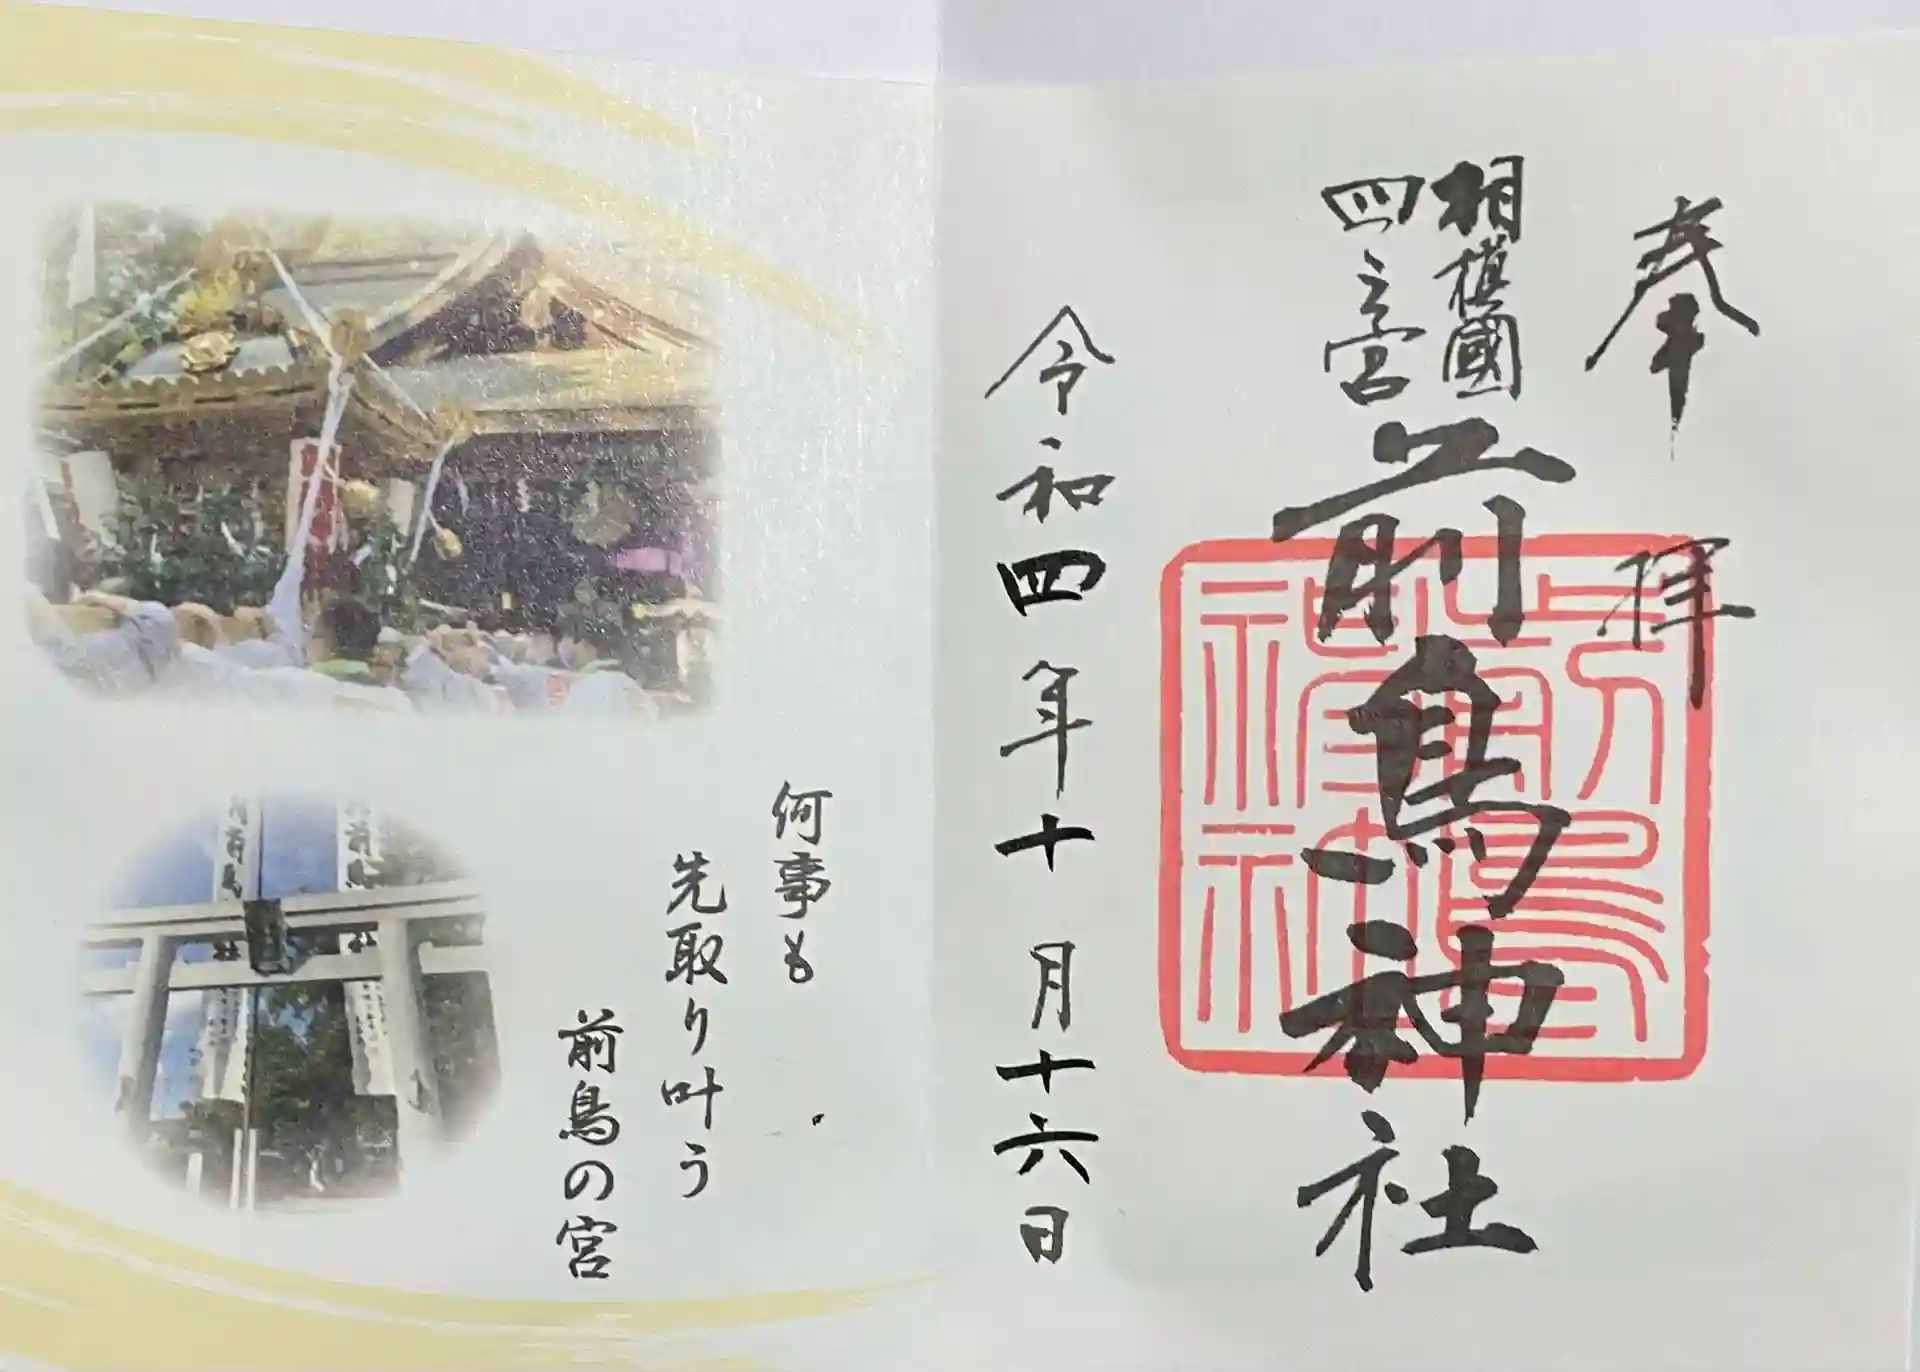 奉拝
相模國
四之宮
前鳥神社
前鳥神社
令和四年十月十六日
何事も
先取り叶う
前鳥の宮